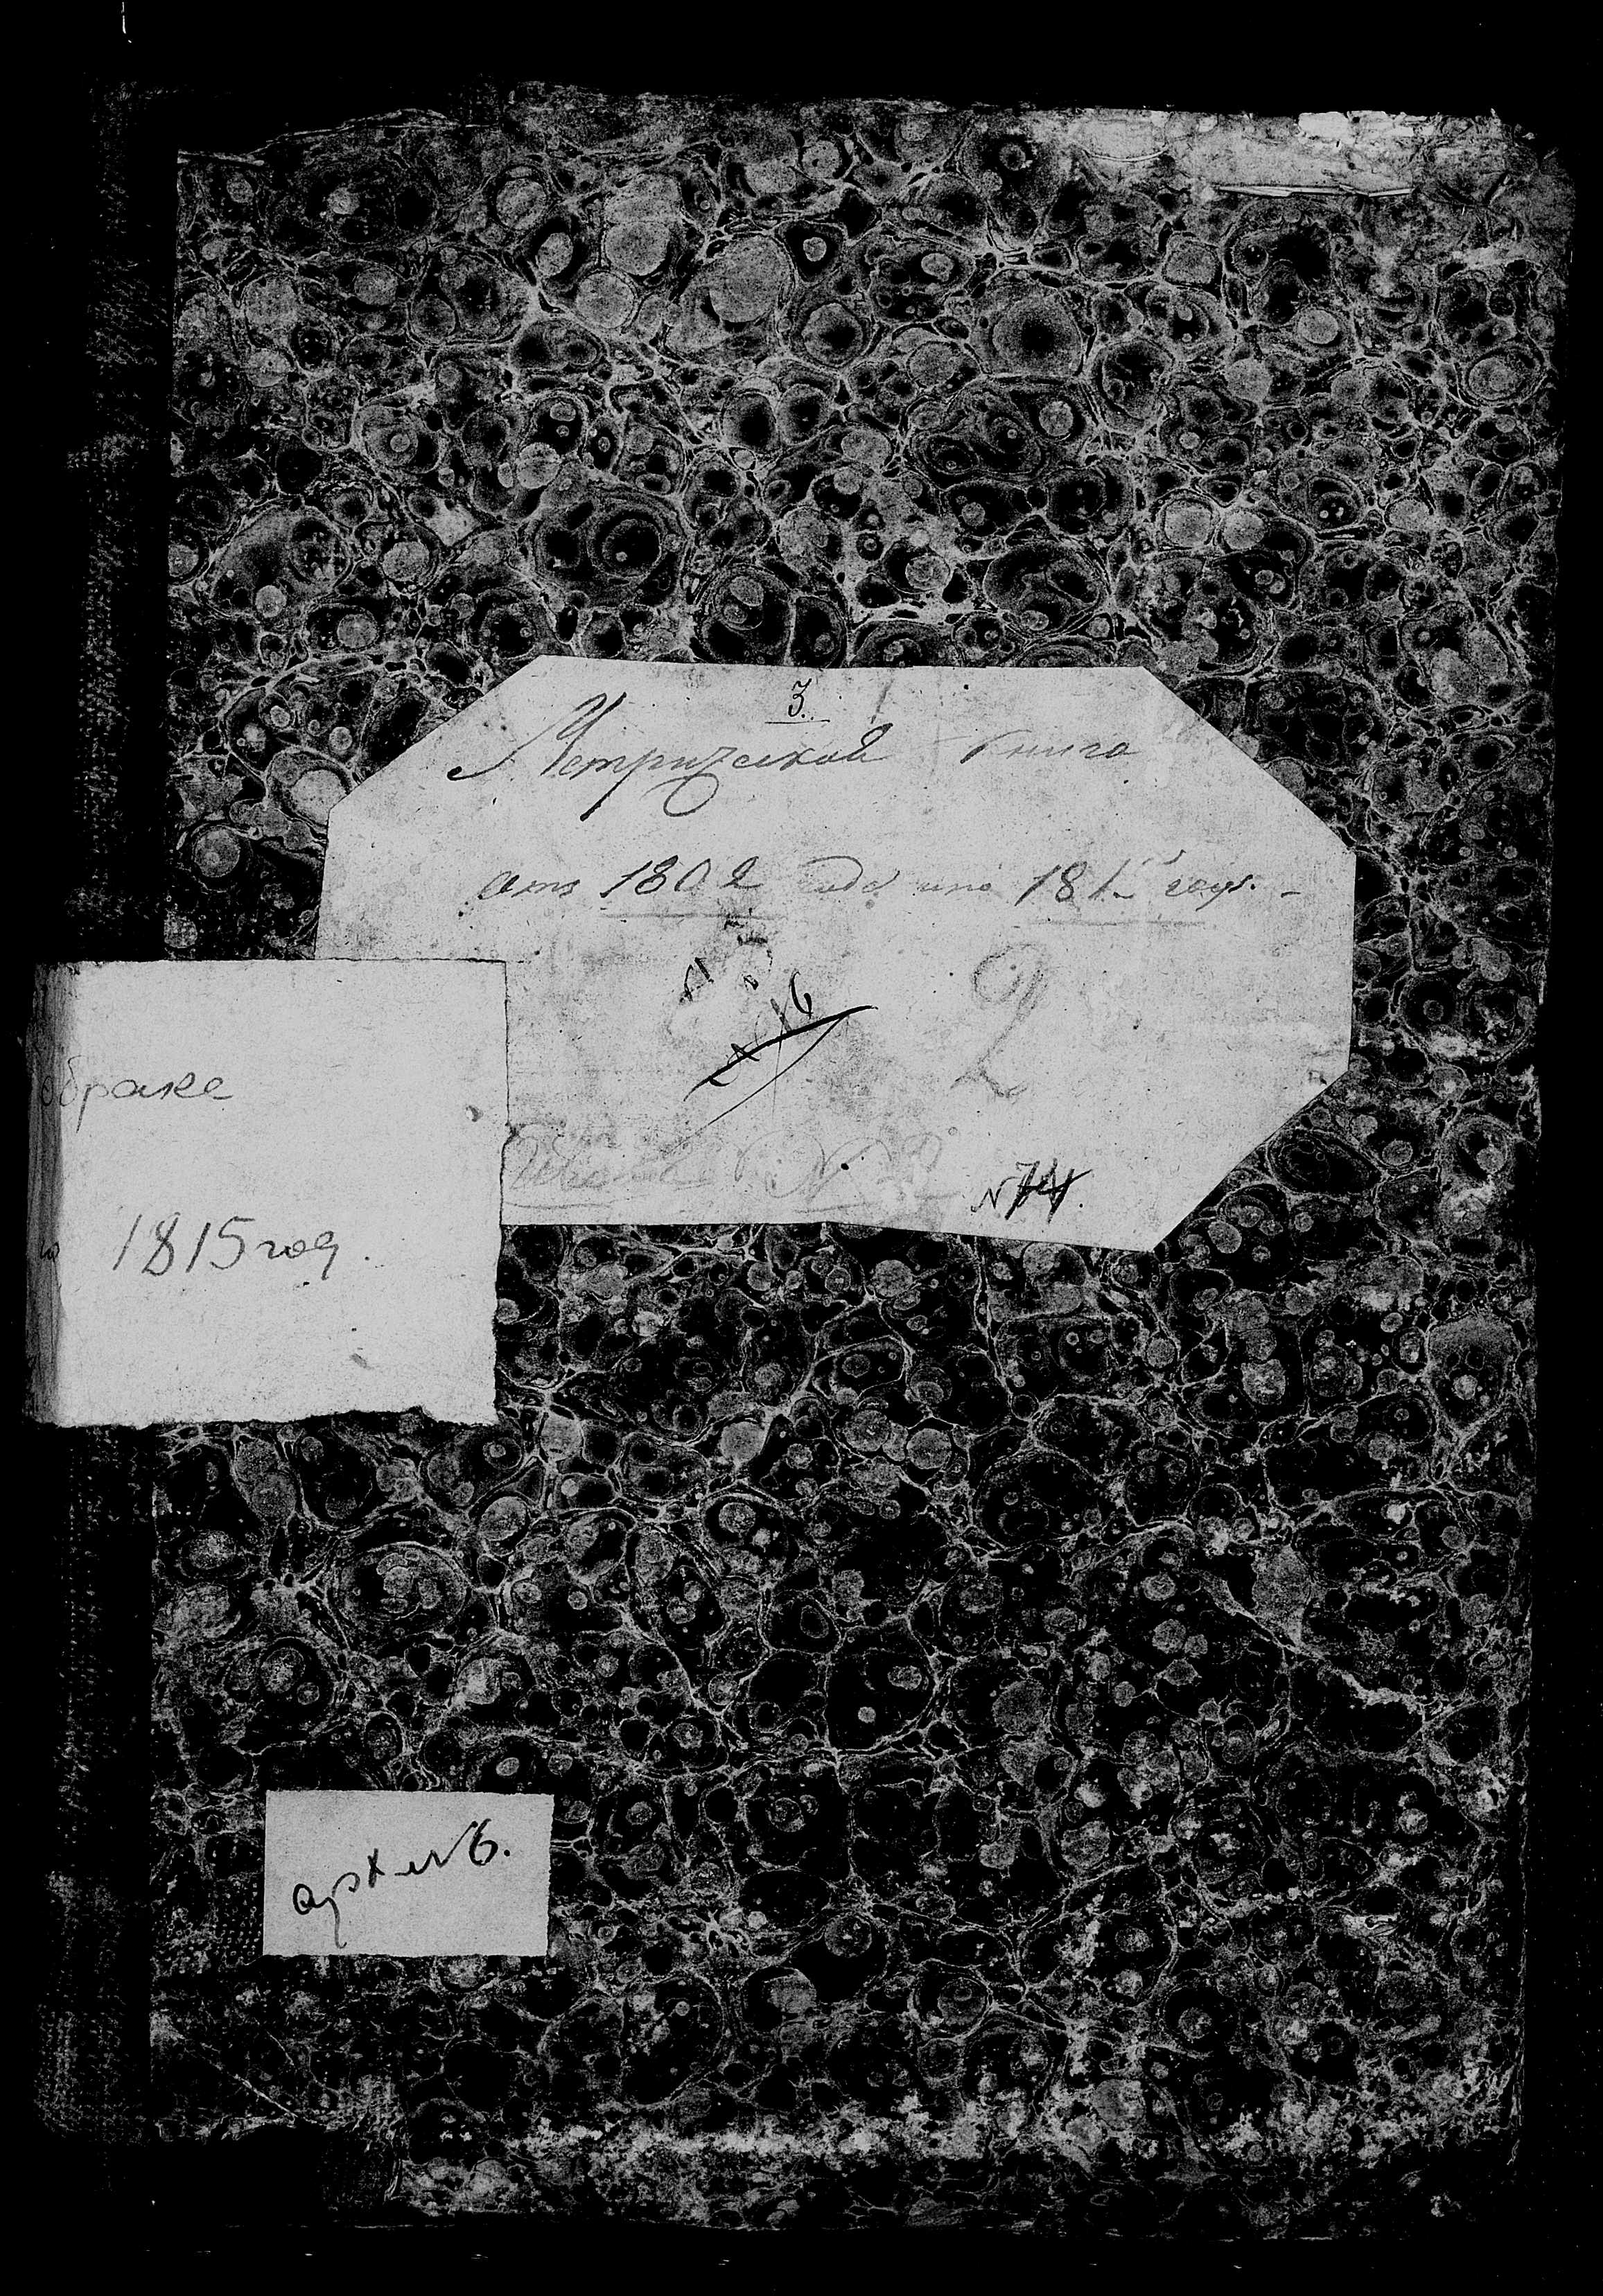 3.
Метрическая книга
отъ 1802 года по 1815 годъ.
2
№ 2
N 74.
о браке
по 1815 год.
архив.